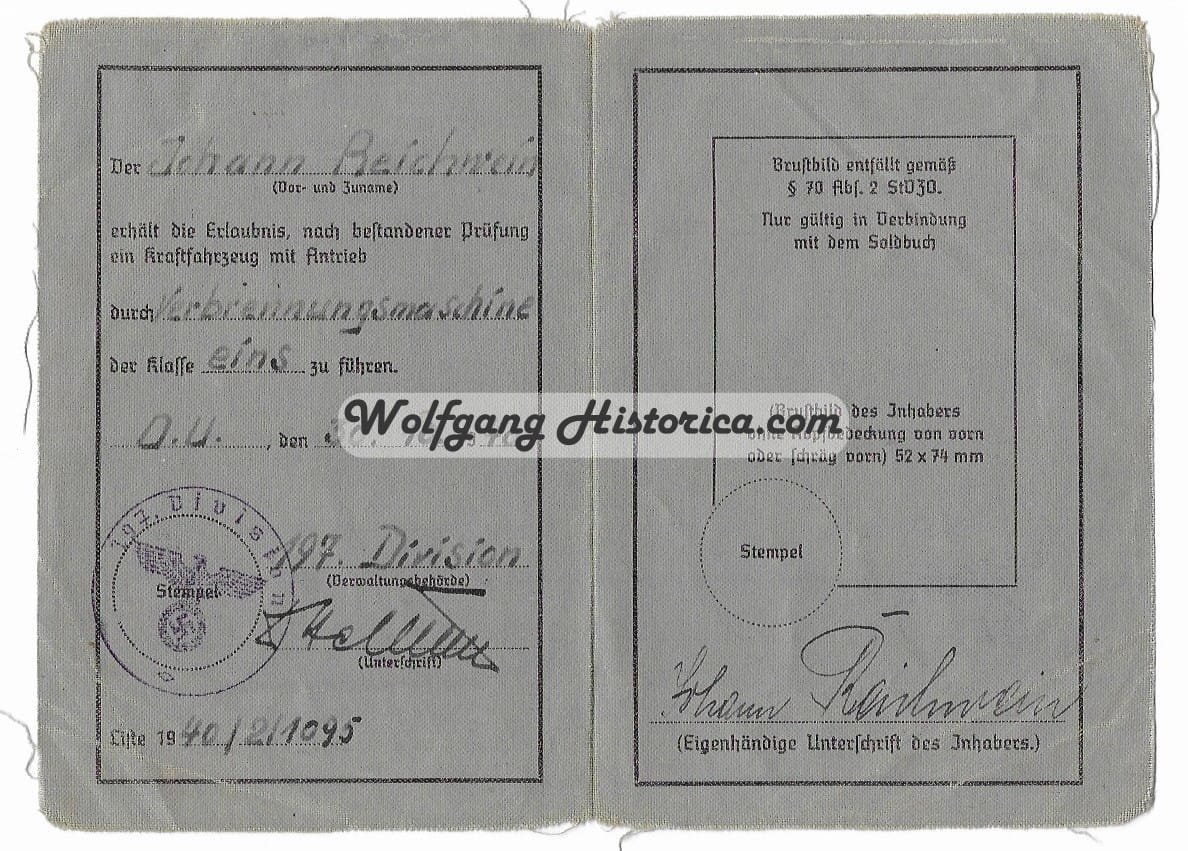 Der Johann Reichwein
(Vor- und Zuname)
erhält die Erlaubnis, nach bestandener Prüfung
ein Kraftfahrzeug mit Antrieb
durch Verbrennungsmaschine
der Klasse eins zu führen.
O.U. , den 30.
197. Division
Stempel
197. Division
(Verwaltungsbehörde)
(Unterschrift)
Liste 1940/2/1095
Brustbild entfällt gemäß
§ 70 Abs. 2 StVZO.
Nur gültig in Verbindung
mit dem Soldbuch
Wolfgang Historica.com
(Brustbild des Inhabers
ohne Kopfbedeckung von vorn
oder schräg vorn) 52 x 74 mm
Stempel
Johann Reichwein
(Eigenhändige Unterschrift des Inhabers.)